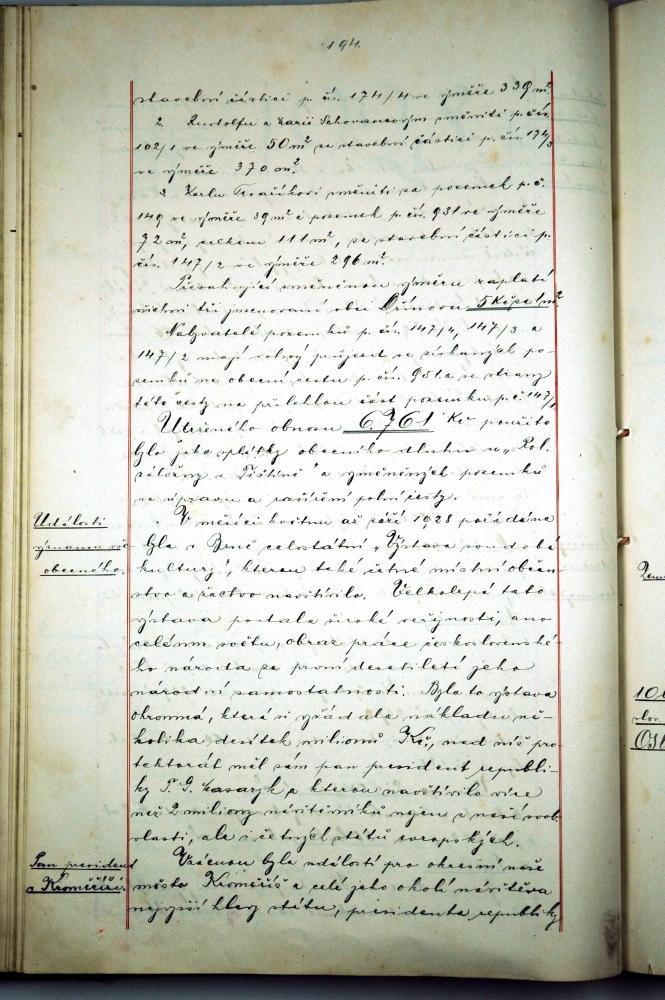 194.
stavební částici p. čís. 174/4 ve výměře 339 m².
2. Rudolfu a Marii Schovancovým směniti p. čís.
102/1 ve výměře 50 m² se stavební částicí p. čís. 174/3
ve výměře 370 m².
3. Karlu směniti za pozemek p. č.
149 ve výměře 39 m² a pozemek p. čís. 931 ve výměře
72 m², celkem 111 m², se stavební částicí p.
čís. 147/2 ve výměře 296 m².
Přesahující směněnou výměru zaplatí
všichni tři jmenovaní obci Dřínovu 5 Kč za 1 m².
Nabyvatelé pozemků p. čís. 147/4, 147/3 a
147/2 mají volný průjezd se získaných po-
zemků na obecní cestu p. čís. 951 a se strany
této cesty na přilehlou část pozemku p. č. 147/1
Utrženého obnosu 6.761 Kč použito
bylo jako splátky obecního dluhu u „Rol.
záložny v Pištíně" a vyměněných pozemků
na úpravu a rozšíření polní cesty.
Události
významu vše-
obecného.
V měsíci květnu až září 1928 pořádána
byla v Brně celostátní „Výstava soudobé
kultury", kterou také četné místní občan-
stvo a žactvo navštívilo. Velkolepá tato
výstava podala široké veřejnosti, ano
celému světu, obraz práce československé-
ho národa za první desetiletí jeho
národní samostatnosti. Byla to výstava
ohromná, která si vyžádala nákladu ně-
kolika desítek milionů Kč, nad níž pro-
tektorát měl sám pan president republi-
ky T. G. Masaryk a kterou navštívilo více
než 2 miliony návštěvníků nejen z naší
vlasti, ale i četných států evropských.
Pan president
v Kroměříži.
Vzácnou byla událostí pro okresní naše
město Kroměříž a celé jeho okolí návštěva
nejvyšší hlavy státu, presidenta republiky